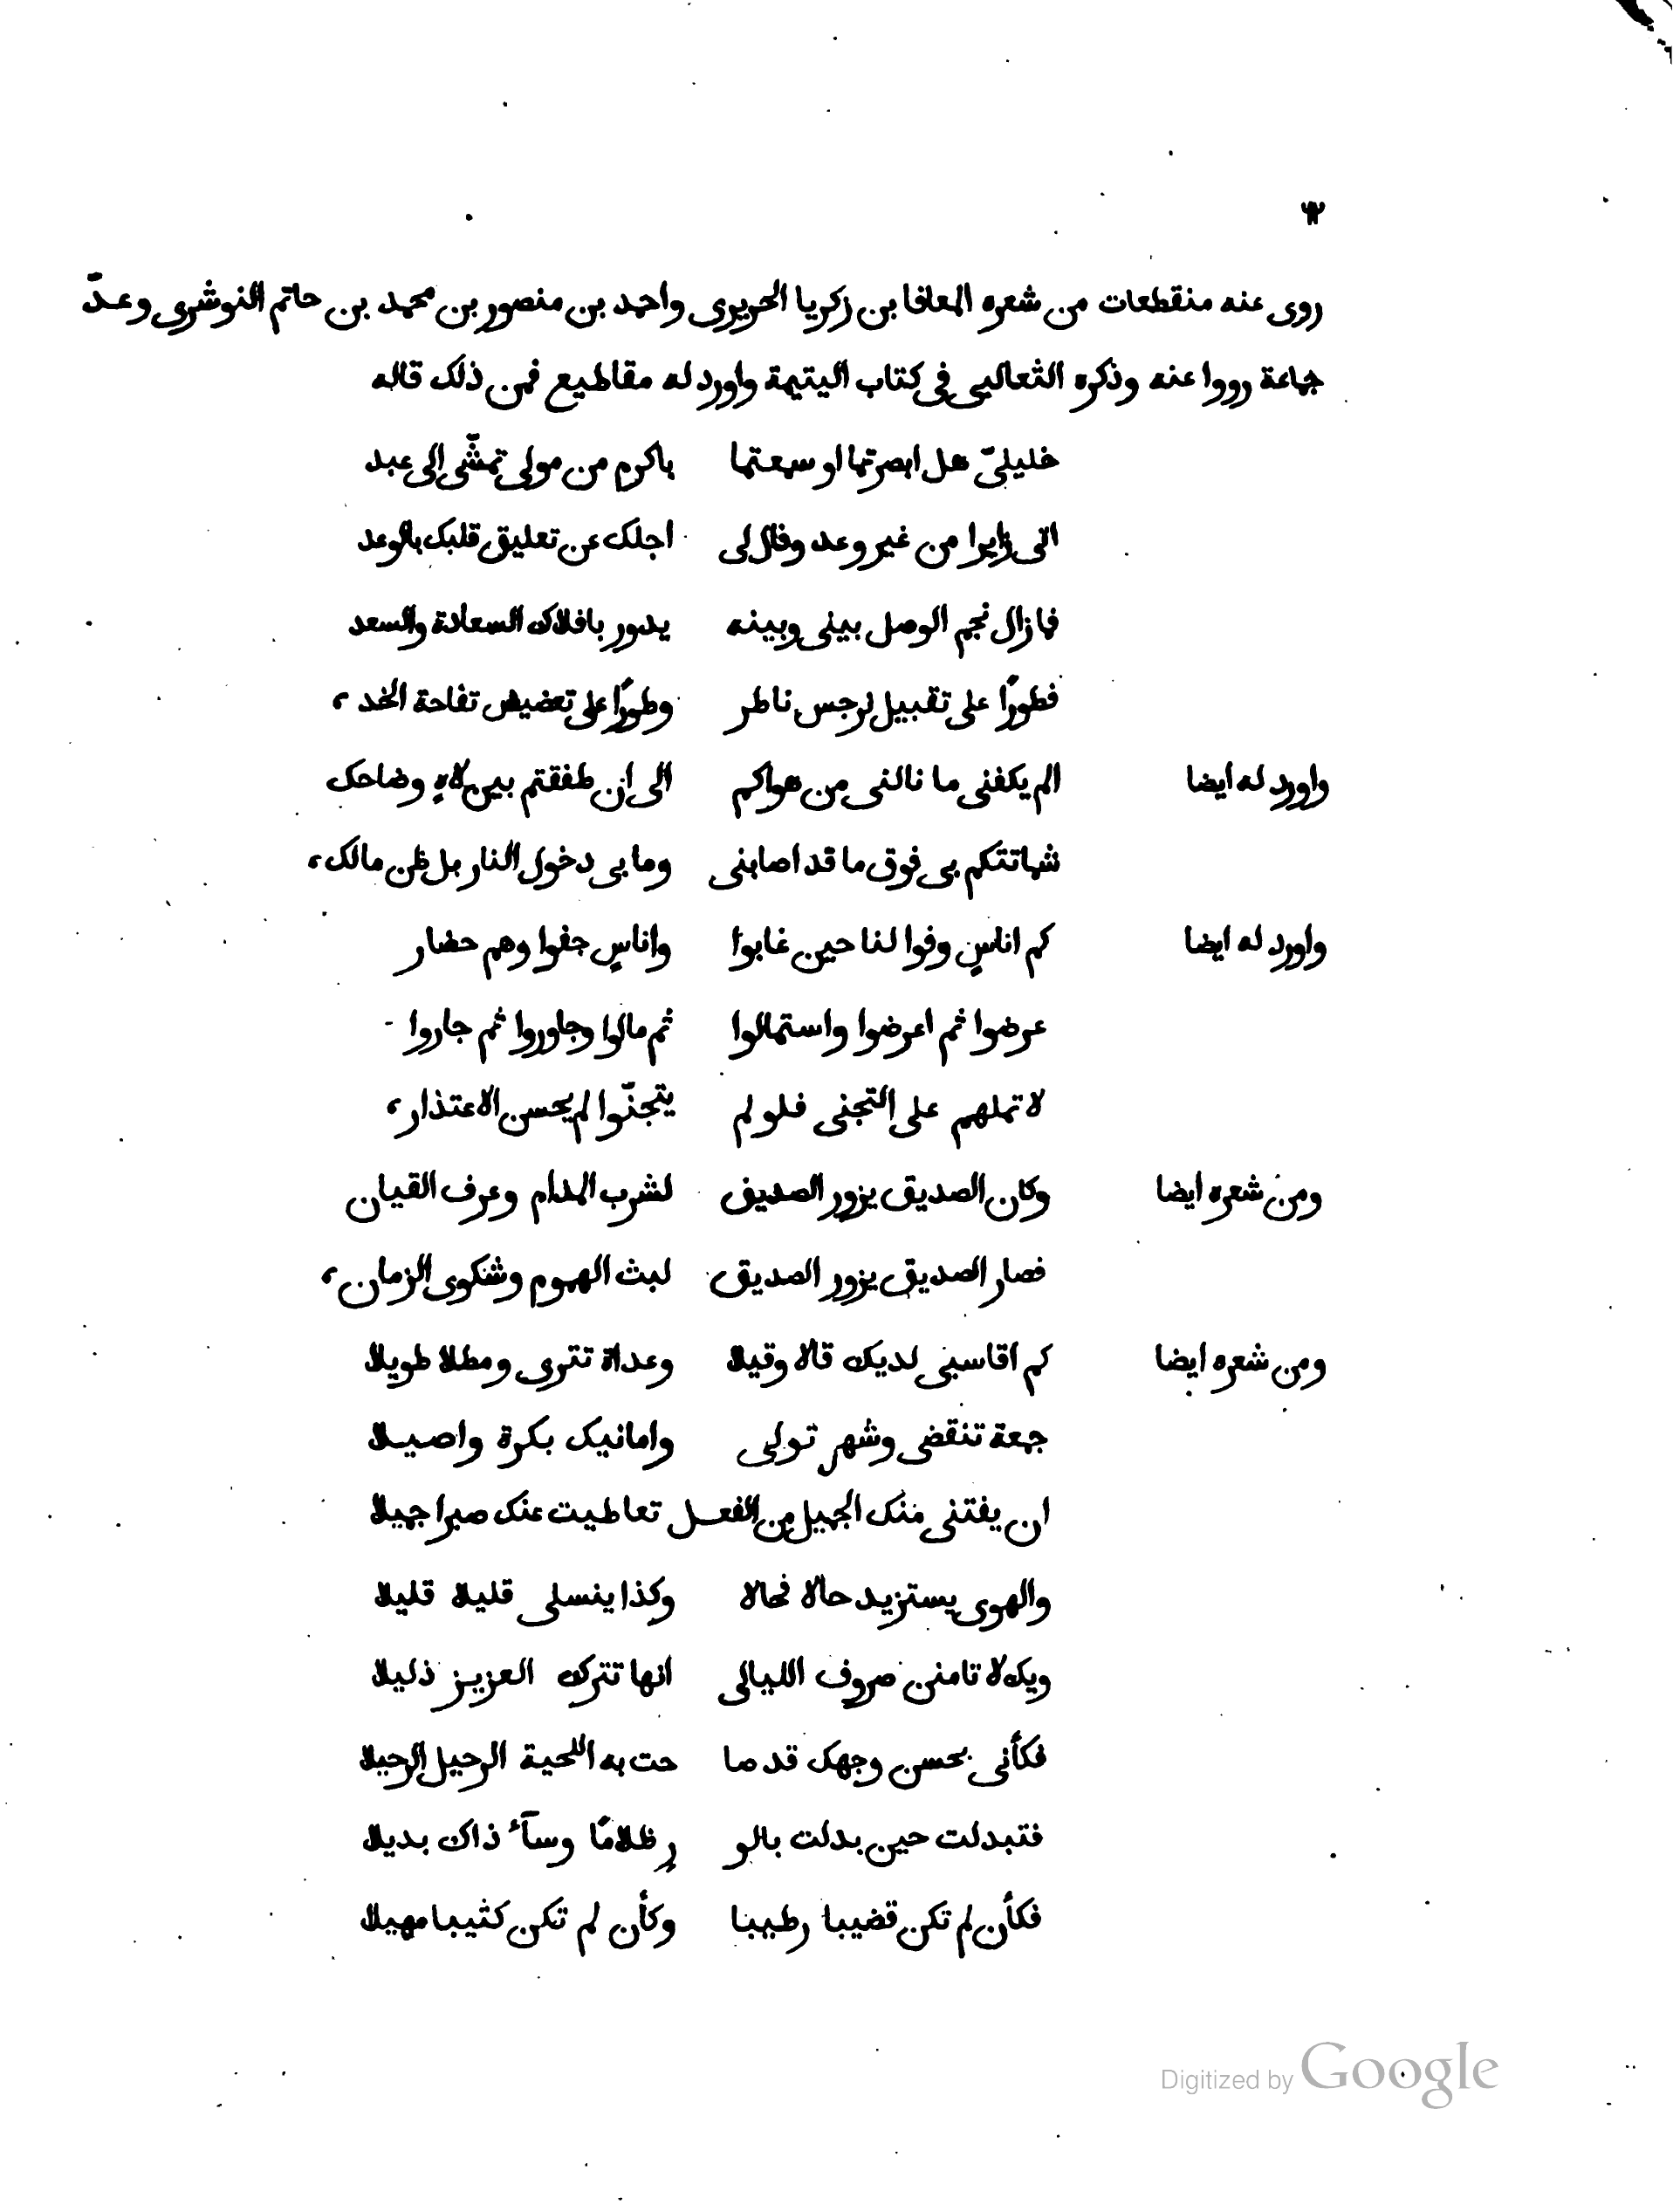 ٣
روى عنه منقطعات من شعره المعافا بن زكريا الحريرى واحمد بن منصور بن محمد بن حاتم النوشرى وعدّ
جماعة رووا عنه وذكره الثعالبى فى كتاب اليتيمة واورد له مقاطيع فمن ذلك قاله
خليلىّ هل ابصرتما او سمعتما باكرم من مولى تمشّى الى عبد
اتى زايرا من غير وعد وقال لى اجلك عن تعليق قلبك بالوعد
فما زال نجم الوصل بينى وبينه يدور بافلاك السعادة والسعد
فطورًا على تقبيل نرجس ناظر وطورًا على تعضيض تفاحة الخد،
واورد له ايضا الم يكفنى ما نالنى من هواكم الى ان طفقتم بين لاهٍ وضاحك
شماتتكم بى فوق ما قد اصابنى وما بى دخول النار بل طن مالك،
واورد له ايضا كم اناسٍ وفوا لنا حين غابوا واناسٍ جفوا وهم حضار
عرضوا ثم اعرضوا واستمالوا ثم مالوا وجاوروا ثم جاروا
لا تملهم على التجنى فلو لم يتجنّوا لم يحسن الاعتذار،
ومن شعره ايضا وكان الصديق يزور الصديق لشرب المدام وعرف القيان
فصار الصديق يزور الصديق لبث الهموم وشكوى الزمان،
ومن شعره ايضا كم اقاسى لديك قالا وقيلا وعداة تترى ومطلا طويلا
جمعة تنقضى وشهر تولى وامانيك بكرة واصيلا
ان يفتنى منك الجميل من الفعل تعاطيت عنك صبرا جميلا
والهوى يستزيد حالا فحالا وكذا ينسلى قليلا قليلا
ويك لا تامنن صروف الليالى انها تترك العزيز ذليلا
فكأنى بحسن وجهك قد صا حت به اللحية الرحيل الرحيلا
فتبدلت حين بدلت بالنو ر ظلامًا وسآء ذاك بديلا
فكأن لم تكن قضيبا رطيبا وكأن لم تكن كثيبا مهيلا
Digitized by Google